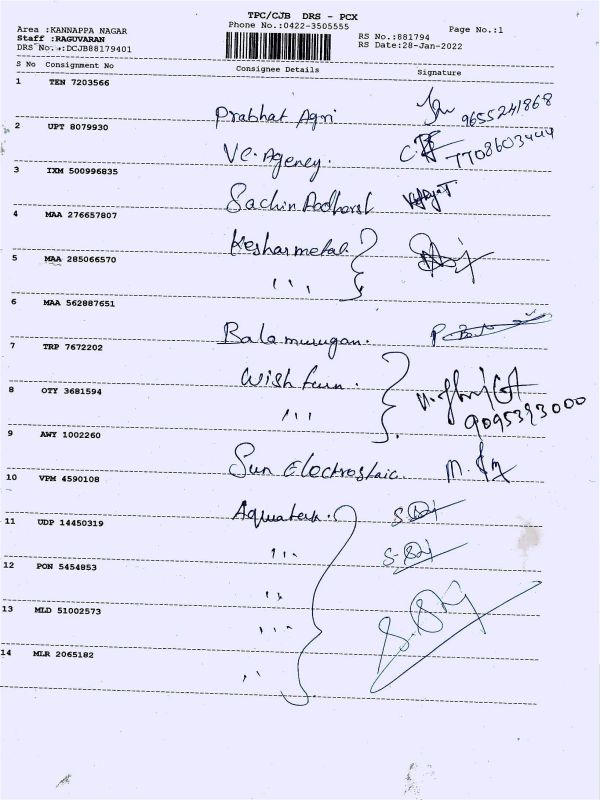 TPC/CJB DRS - PCX
Phone No.:0422-3505555
Page No.:1
Area :KANNAPPA NAGAR
Staff :RAGUVARAN
DRS No.:DCJB88179401
RS No.:881794
RS Date:28-Jan-2022
S No Consignment No Consignee Details Signature
1 TEN 7203566
Prabhat Agri 9655241868
2 UPT 8079930
VC. Agency. 7708603444
3 IXM 500996835
Sachin
4 MAA 276657807
Keshar metal
5 MAA 285066570
,,,
6 MAA 562887651
Balamurugan.
7 TRP 7672202
Wish
8 OTY 3681594
,,, 9095393000
9 AWY 1002260
Sun Electrostaic
10 VPM 4590108
11 UDP 14450319
12 PON 5454853
13 MLD 51002573
14 MLR 2065182